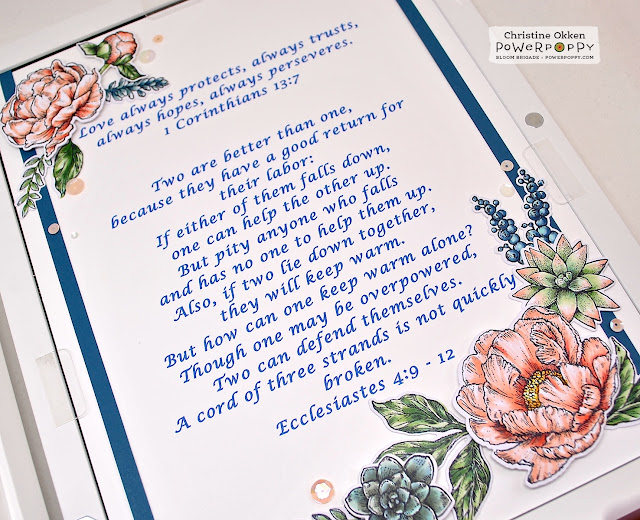 Christine Okken
POWERPOPPY
BLOOM BRIGADE • POWERPOPPY.COM
Love always protects, always trusts,
always hopes, always perseveres.
1 Corinthians 13:7
Two are better than one,
because they have a good return for
their labor:
If either of them falls down,
one can help the other up.
But pity anyone who falls
and has no one to help them up.
Also, if two lie down together,
they will keep warm.
But how can one keep warm alone?
Though one may be overpowered,
Two can defend themselves.
A cord of three strands is not quickly
broken.
Ecclesiastes 4:9 - 12